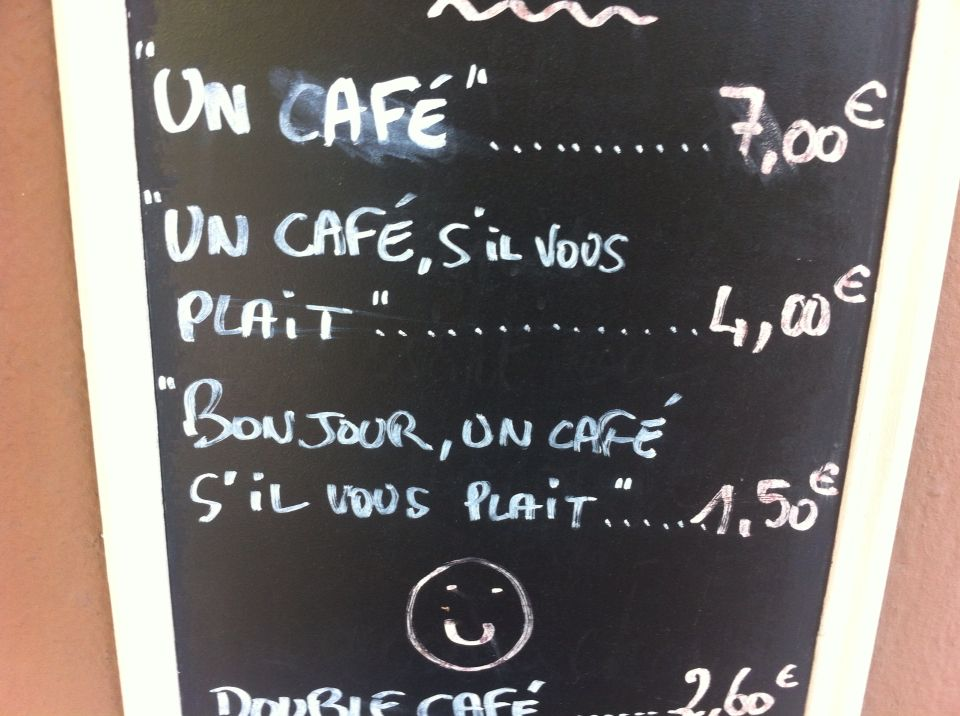 "UN CAFÉ" ........... 7,00€
"UN CAFÉ, S'iL VOUS
PLAiT" ................ 4,00€
"BONJOUR, UN CAFÉ
S'iL VOUS PLAiT" ...... 1,50€
DOUBLE CAFÉ ........ 2,60€